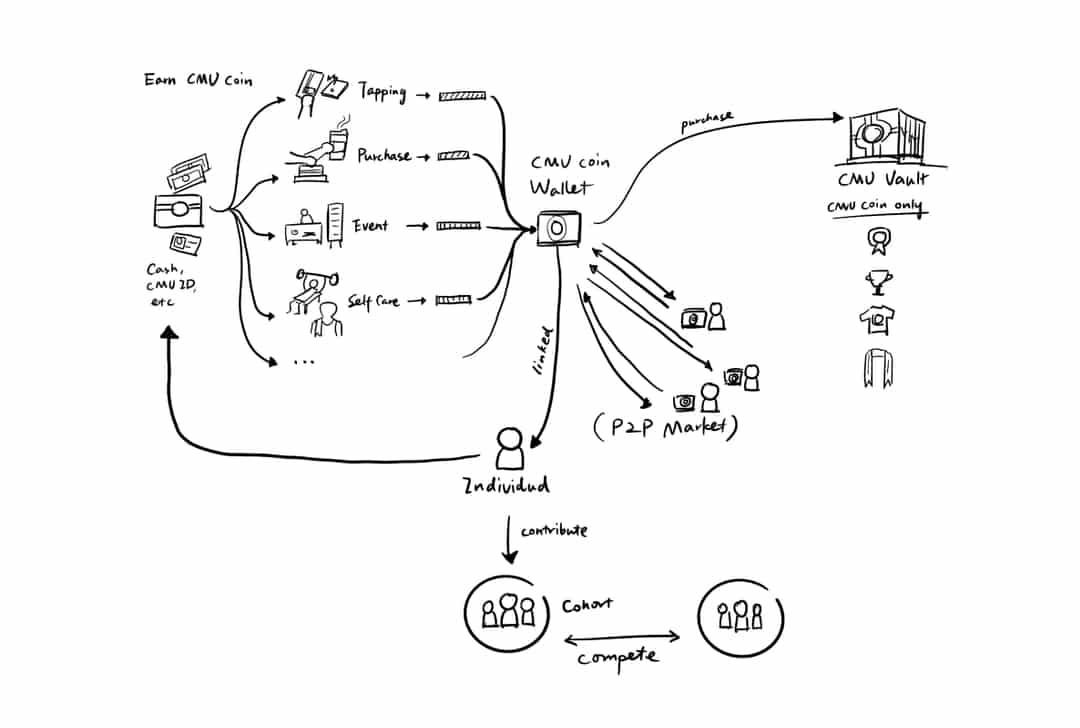 Earn CMU coin
Tapping
Purchase
Event
Self Care
...
Cash,
CMU ID,
etc
CMU coin
Wallet
purchase
CMU Vault
CMU coin only
linked
(P2P Market)
Individual
contribute
Cohort
compete